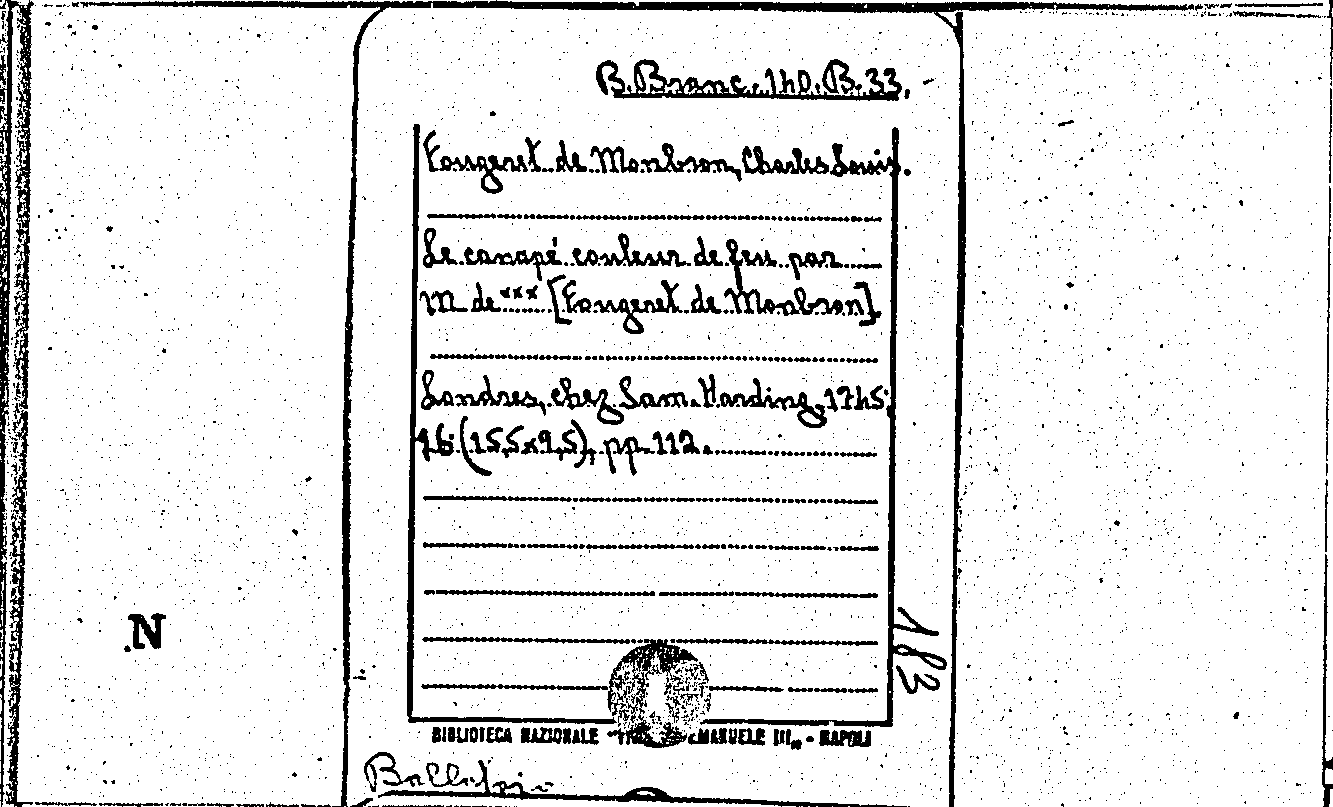 B. Branc. 140. B. 33.
Fougeret de Monbron, Charles Louis.
Le canapé couleur de feu par
M de *** [Fougeret de Monbron].
Londres, chez Sam. Harding, 1745;
16° (15,5x9,5), pp. 112.
183
N
BIBLIOTECA NAZIONALE EMANUELE III„ - NAPOLI